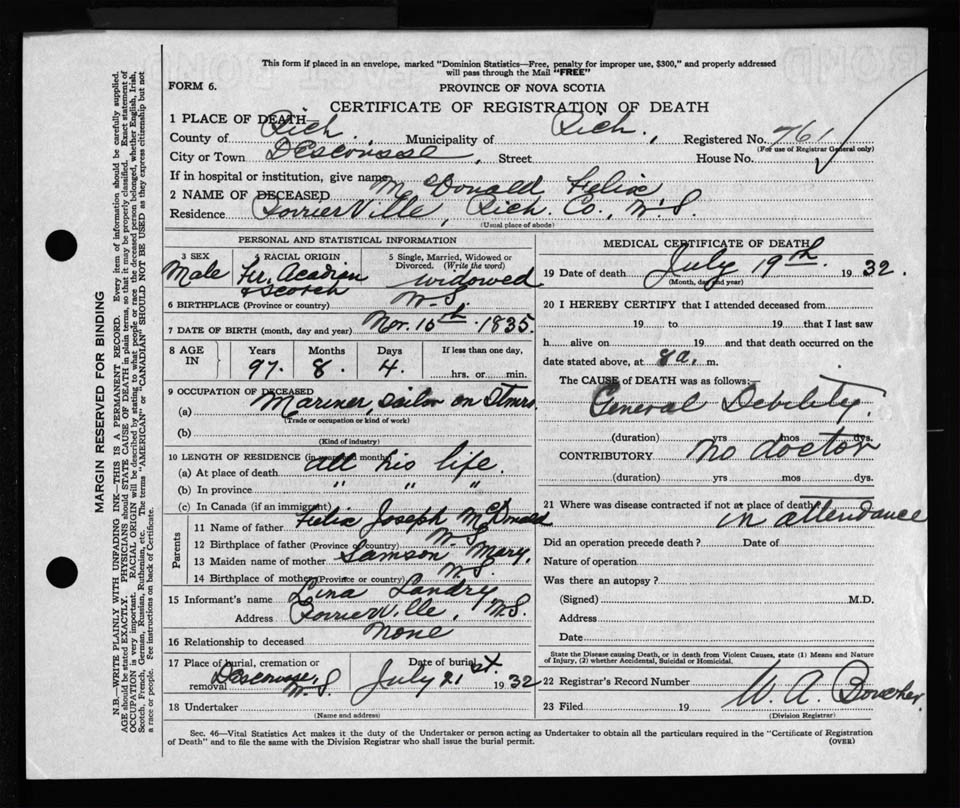 This form if placed in an envelope, marked "Dominion Statistics—Free, penalty for improper use, $300," and properly addressed
will pass through the Mail "FREE"
FORM 6.
PROVINCE OF NOVA SCOTIA
CERTIFICATE OF REGISTRATION OF DEATH
1 PLACE OF DEATH
County of Rich. Municipality of Rich., Registered No. 761
(For use of Registrar General only)
City or Town Descousse, Street House No.
If in hospital or institution, give name
2 NAME OF DECEASED McDonald Felix
Residence PoirierVille, Rich. Co., N.S.
(Usual place of abode)
PERSONAL AND STATISTICAL INFORMATION
3 SEX RACIAL ORIGIN 5 Single, Married, Widowed or
Divorced. (Write the word)
Male Fr. Acadian & Scotch widowed
6 BIRTHPLACE (Province or country) N.S.
7 DATE OF BIRTH (month, day and year) Nov. 15th. 1835.
8 AGE IN Years Months Days If less than one day,
97. 8. 4. hrs. or min.
9 OCCUPATION OF DECEASED
(a) Mariner, sailor on Stmrs.
(Trade or occupation or kind of work)
(b)
(Kind of industry)
10 LENGTH OF RESIDENCE (in years and months)
(a) At place of death all his life.
(b) In province " " "
(c) In Canada (if an immigrant)
Parents
11 Name of father Felix Joseph McDonald
12 Birthplace of father (Province or country) N.S.
13 Maiden name of mother Samson Mary.
14 Birthplace of mother (Province or country) N.S.
15 Informant's name Lina Landry
Address PoirierVille, N.S.
16 Relationship to deceased none
17 Place of burial, cremation or removal Descousse, N.S. Date of burial July 21st. 1932
18 Undertaker
(Name and address)
MEDICAL CERTIFICATE OF DEATH
19 Date of death July 19th. 1932.
(Month, day and year)
20 I HEREBY CERTIFY that I attended deceased from
19 to 19 that I last saw
h alive on 19 and that death occurred on the
date stated above, at 8 a. m.
The CAUSE of DEATH was as follows:—
General Debility.
(duration) yrs mos dys.
CONTRIBUTORY no doctor
(duration) yrs mos dys.
21 Where was disease contracted if not at place of death?
in attendance
Did an operation precede death? Date of
Nature of operation
Was there an autopsy?
(Signed) M.D.
Address
Date
State the Disease causing Death, or in death from Violent Causes, state (1) Means and Nature
of Injury, (2) whether Accidental, Suicidal or Homicidal.
22 Registrar's Record Number
23 Filed 19 W. A. Boucher.
(Division Registrar)
Sec. 46—Vital Statistics Act makes it the duty of the Undertaker or person acting as Undertaker to obtain all the particulars required in the "Certificate of Registration
of Death" and to file the same with the Division Registrar who shall issue the burial permit.
(OVER)
MARGIN RESERVED FOR BINDING
N.B.—WRITE PLAINLY WITH UNFADING INK—THIS IS A PERMANENT RECORD. Every item of information should be carefully supplied.
AGE should be stated EXACTLY. PHYSICIANS should STATE CAUSE OF DEATH in plain terms, so that it may be properly classified. Exact statement of
OCCUPATION is very important. RACIAL ORIGIN will be described by stating to what people or race the deceased person belonged, whether English, Irish,
Scotch, French, German, Russian, Ruthenian, etc. The terms "AMERICAN" or "CANADIAN" SHOULD NOT BE USED as they express citizenship but not
a race or people. See instructions on back of Certificate.